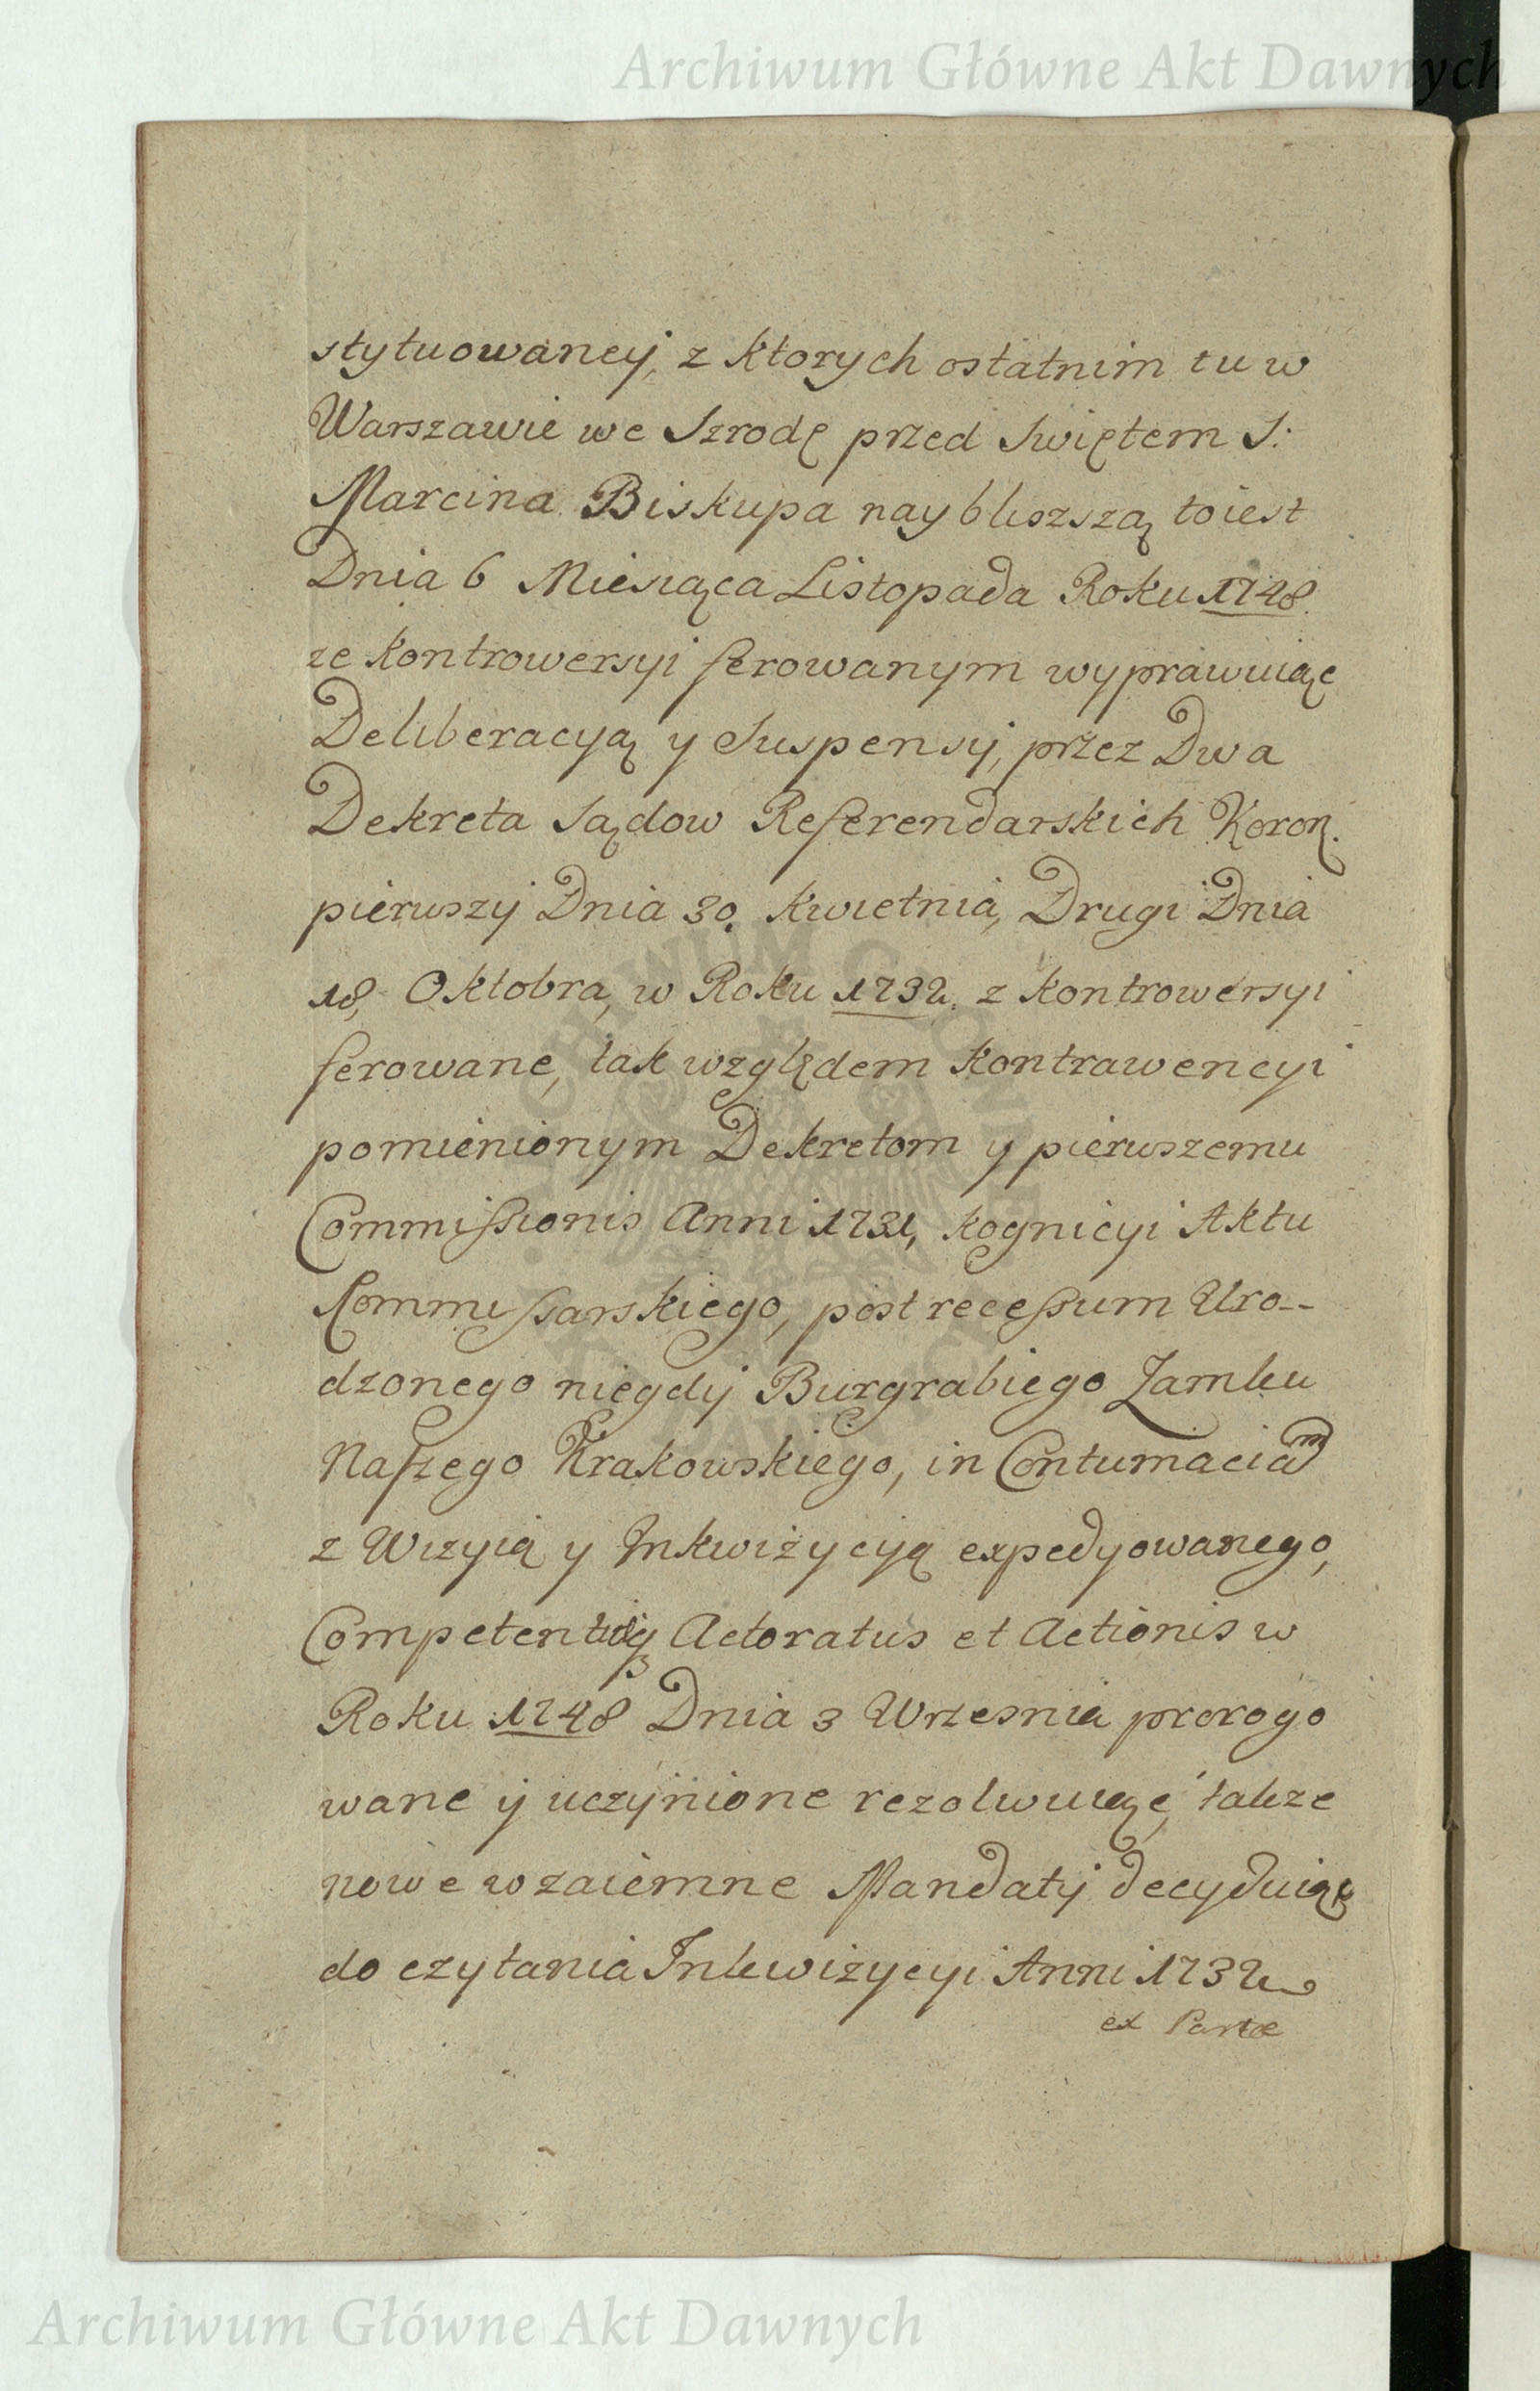 Archiwum Główne Akt Dawnych
stytuowaney, z ktorych ostatnim tu w
Warszawie we Szrodę przed Swiętem S:
Marcina Biskupa nay bliszszą toiest
Dnia 6 Miesiąca Listopada Roku 1748.
ze kontrowersyi ferowanym wyprawuiąc
Deliberacyą y Suspensij, przez Dwa
Dekreta Sądow Referendarskich Koron.
pierwszij Dnia 30. Kwietnia, Drugi Dnia
18, Oktobra, w Roku 1732. z kontrowersyi
ferowane, tak względem kontrawencyi
pomienionym Dekretom y pierwszemu
Commissionis Anni 1731, kognicyi Aktu
Kommissarskiego, post recessum Uro-
dzonego niegdij Burgrabiego Zamku
Naszego Krakowskiego, in Contumaciam
z Wizyią y Inkwizycyą expedyowanego,
Actoratus et Actionis w
Roku 1748 Dnia 3 Wrzesnia prorogo
wane ij uczynione rezolwuiąc, takze
nowe wzaiemne Mandatij decyduiąc
do czytania Inkwizycyi Anni 1732
ex Parte
Archiwum Główne Akt Dawnych